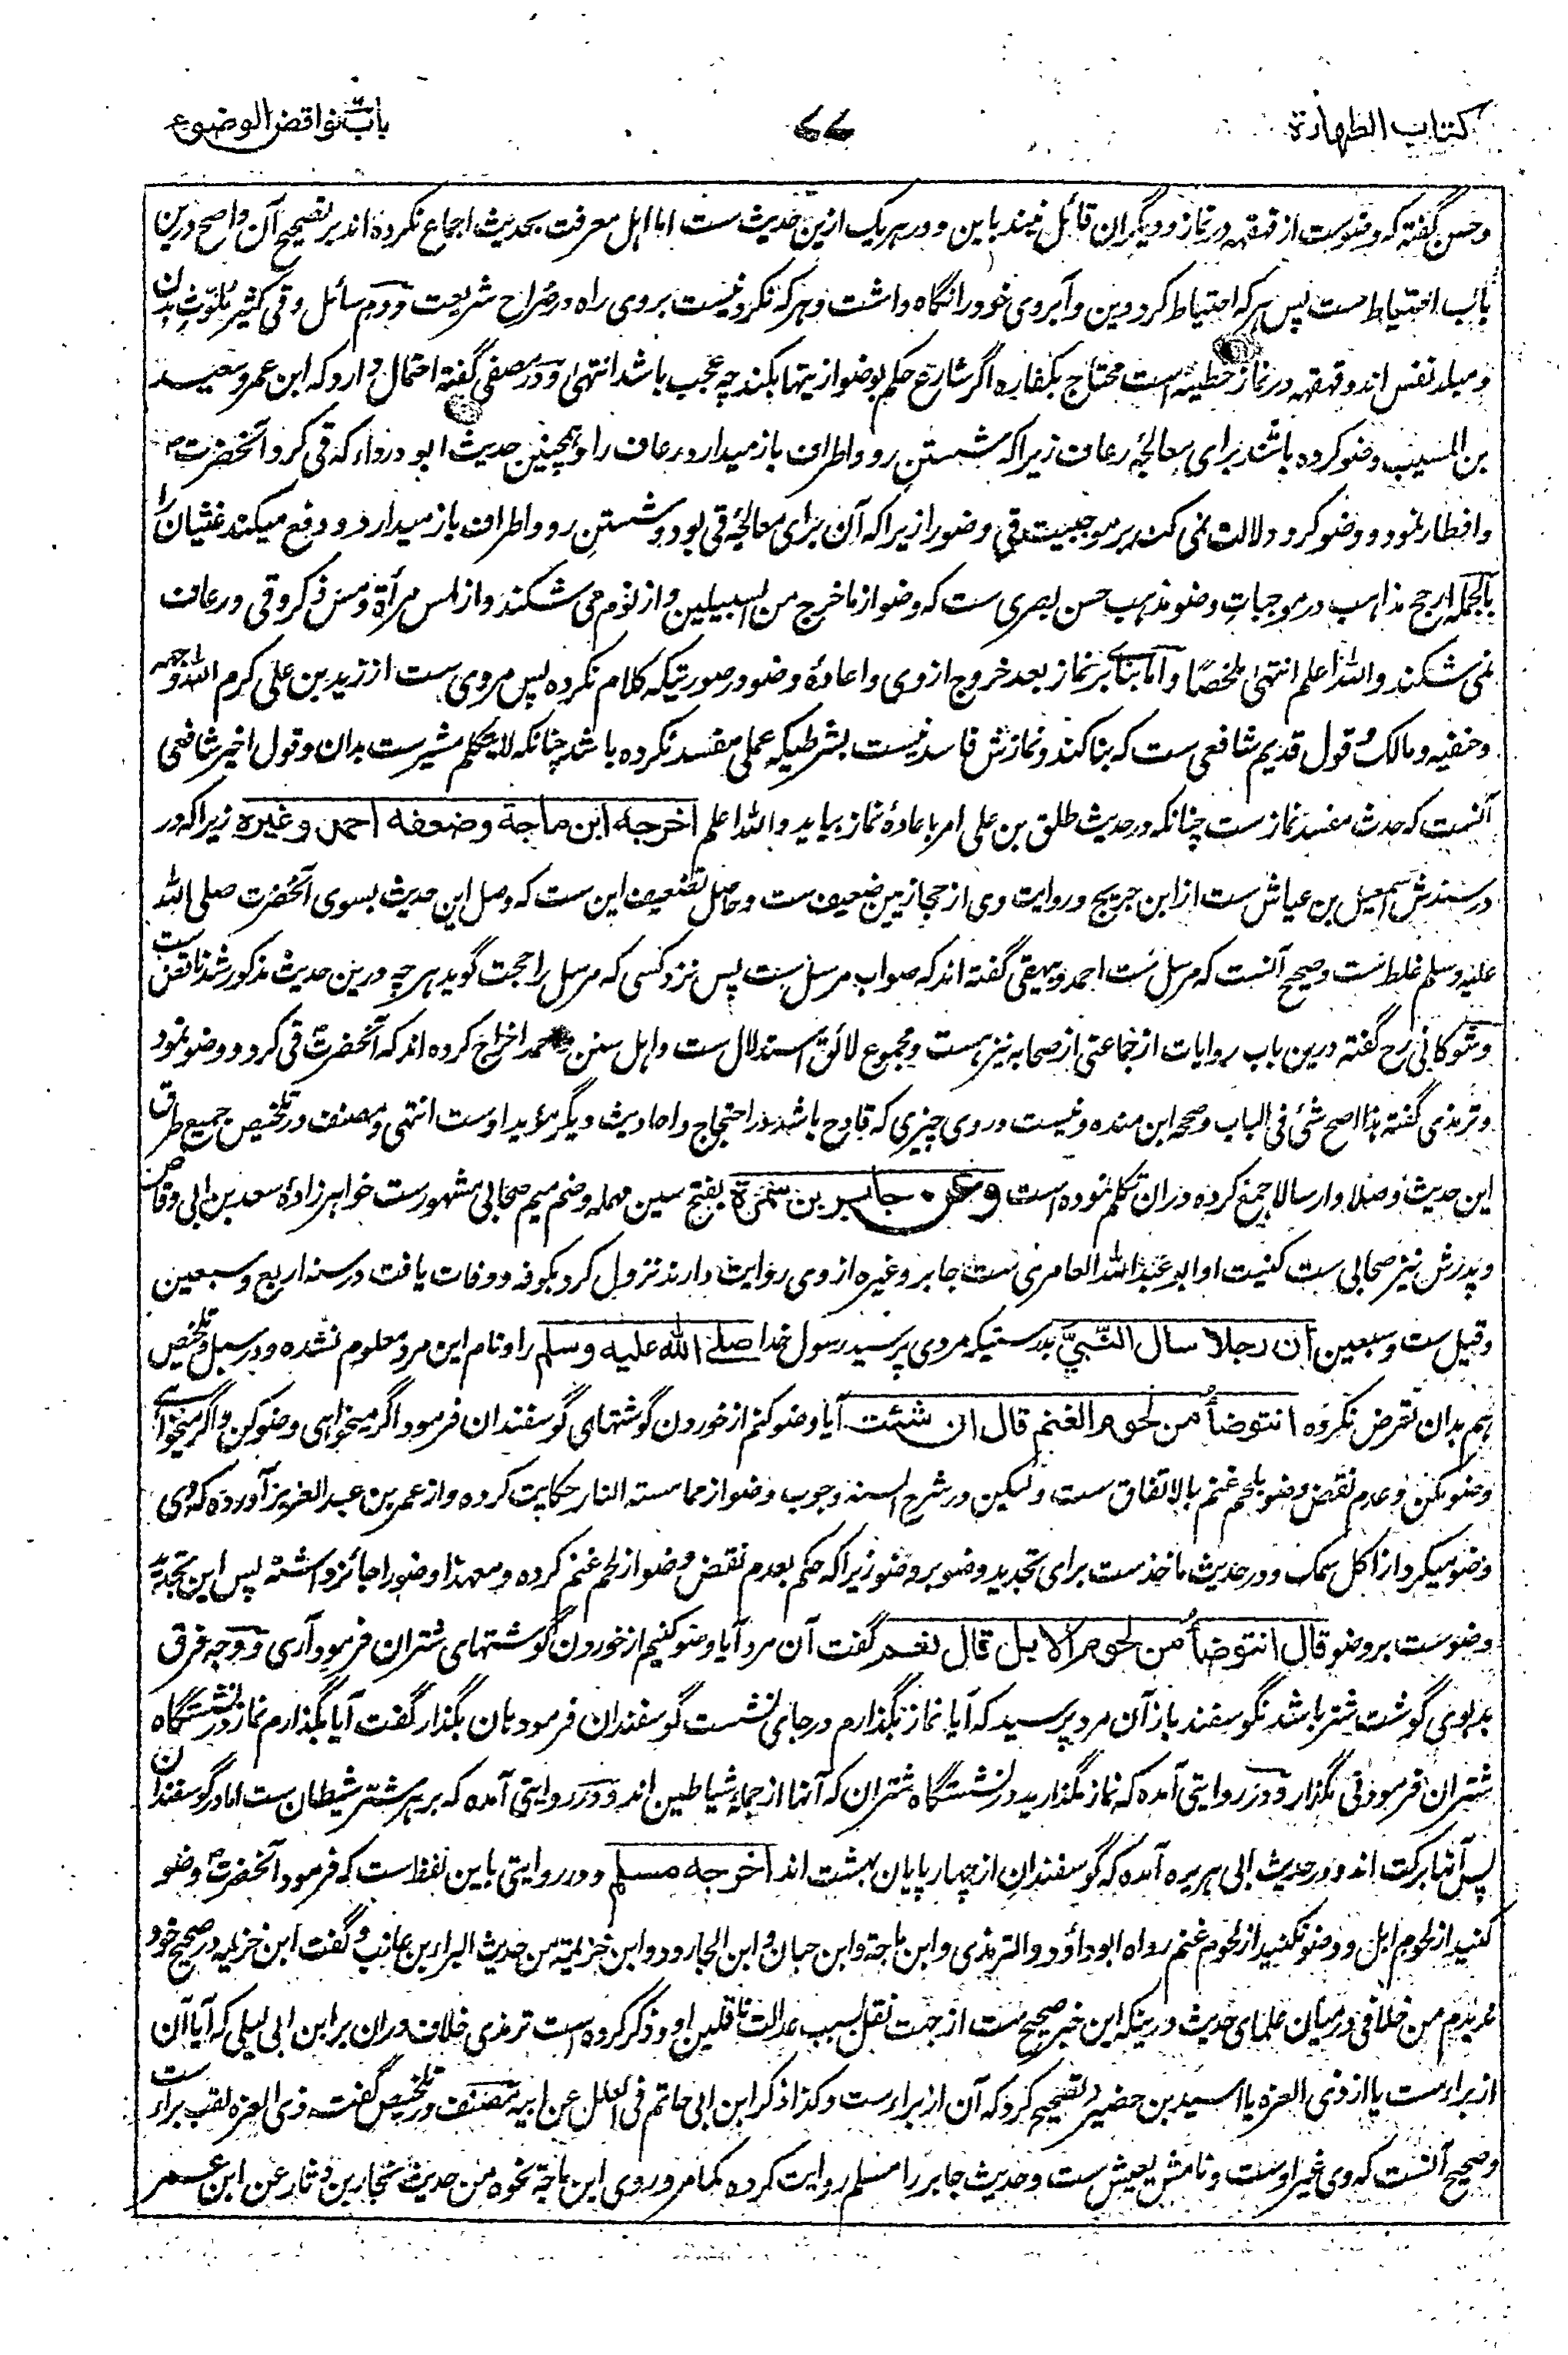 کتاب الطهارة ۷۷ باب نواقض الوضوء
وحسن گفته که وضوست از قهقهه در نماز و دیگران قائل نیند باین و در هر یک ازین حدیث ست اما اهل معرفت بحدیث اجماع نکرده اند بر تصحیح آن واصح درین
باب احتیاط ست پس هر که احتیاط کرد دین و آبروی خود را نگاه داشت و هر که نکرد نیست بروی راه در صراح شریعت و دم سائل وقی کثیر ملوث بدن
و مبلد نفس اند و قهقهه در نماز خطیئه است محتاج بکفاره اگر شارع حکم بوضو ازینها بکند چه عجب باشد انتهی و در مصفی گفته احتمال دارد که ابن عمر و سعید
بن المسیب وضو کرده باشند برای معالجۂ رعاف زیرا که شستن رو و اطراف باز میدارد رعاف را و همچنین حدیث ابو درداء که قی کرد آنحضرت ص
وافطار نمود و وضو کرد دلالت نمی کند بر موجبیت قی وضو را زیرا که آن برای معالجۂ قی بود و شستن رو و اطراف باز میدارد و دفع میکند غثیان را
بالجمله ارجح مذاهب در موجبات وضو مذهب حسن بصری ست که وضو از ما خرج من السبیلین و از نوم می شکند و از لمس مرأة و مس ذکر وقی و رعاف
نمی شکند والله اعلم انتهی ملخصًا و اما بنای بر نماز بعد خروج از وی و اعادۂ وضو در صورتیکه کلام نکرده پس مروی ست از زید بن علی کرم الله وجهه
و حنفیه و مالک و قول قدیم شافعی ست که بنا کند و نمازش فاسد نیست بشرطیکه عملی مفسد نکرده باشد چنانکه لا یتکلم مشیر ست بدان و قول اخیر شافعی
آنست که حدث مفسد نماز ست چنانکه در حدیث طلق بن علی امر باعادۂ نماز بیاید والله اعلم اخرجه ابن ماجة وضعفه احمد وغیره زیرا که در
در سندش اسمعیل بن عیاش ست از ابن جریج و روایت وی از حجازیین ضعیف ست و حاصل تضعیف این ست که وصل این حدیث بسوی آنحضرت صلی الله
علیه وسلم غلط ست وصحیح آنست که مرسل ست احمد و بیهقی گفته اند که صواب مرسل ست پس نزد کسی که مرسل را حجت گوید هر چه درین حدیث مذکور شد ناقض ست
وشوکانی رح گفته درین باب روایات از جماعتی از صحابه نیز هست و مجموع لائق استدلال ست و اهل سنن و احمد اخراج کرده اند که آنحضرت ص قی کرد و وضو نمود
و ترمذی گفته هذا اصح شئ فی الباب وصححه ابن منده و نیست در وی چیزی که قادح باشد در احتجاج و احادیث دیگر مؤید اوست انتهی و مصنف در تلخیص جمیع طرق
این حدیث وصلا و ارسالا جمع کرده در ان تکلم نموده است وعن جابر بن سَمُرَة بفتح سین مهمله و ضم میم صحابی مشهورست خواهر زادۂ سعد بن ابی وقاص
و پدرش نیز صحابی ست کنیت او ابو عبدالله العامری ست جابر و غیره از وی روایت دارند نزول کرد بکوفه و وفات یافت در سنه اربع و سبعین
وقیل ست و سبعین ان رجلا سال النَّبِيَّ بدرستیکه مردی پرسید رسول خدا صلے الله علیه وسلم را و نام این مرد معلوم نشده و در سبل و تلخیص
هم بدان تعرض نکرده انتوضأُ من لحوم الغنم قال ان شئت آیا وضو کنم از خوردن گوشتهای گوسفندان فرمود اگر میخواهی وضو کن و اگر میخواهی
وضو مکن و عدم نقض وضو بلحم غنم بالاتفاق ست و لیکن در شرح السنه وجوب وضو از مما مسته النار حکایت کرده و از عمر بن عبدالعزیز آورده که وی
وضو میکرد از اکل سمک و در حدیث ماخذست برای تجدید وضو بر وضو زیرا که حکم بعدم نقض وضو از لحم غنم کرده و معهذا وضو را جائز داشته پس این تجدید
وضوست بر وضو قال انتوضأُ من لحوم الابل قال نعم گفت آن مرد آیا وضو کنیم از خوردن گوشتهای شتران فرمود آری و وجه فرق
بدبوی گوشت شتر باشد نگوسفند باز آن مرد پرسید که آیا نماز بگذارم در جای نشست گوسفندان فرمود بان بگذار گفت آیا بگذارم نماز در نشستگاه
شتران فرمود نی مگذار و در روایتی آمده که نماز مگذارید در نشستگاه شتران که آنها از جمله شیاطین اند و در روایتی آمده که بر هر شتر شیطان ست اما در گوسفندان
پس آنها برکت اند و در حدیث ابی هریره آمده که گوسفندان از چهار پایان بهشت اند اخرجه مسلم و در روایتی باین لفظ است که فرمود آنحضرت ص وضو
کنید از لحوم ابل و وضو نکنید از لحوم غنم رواه ابو داؤد والترمذی وابن ماجة وابن حبان وابن الجارود وابن خزیمة من حدیث البراء بن عازب و گفت ابن خزیمه در صحیح خود
ندیدم من خلافی درمیان علمای حدیث درینکه این خبر صحیح ست از جهت نقل بسبب عدالت ناقلین او و ذکر کرده است ترمذی خلاف در ان بر ابن ابی لیلی که آیا آن
از براء ست یا از ذی الغره یا اسید بن حضیر و تصحیح کرد که آن از براء ست وکذا ذکر ابن ابی حاتم فی العلل عن ابیه مصنف در تلخیص گفته ذی الغره لقب براء ست
وصحیح آنست که وی غیر اوست و نامش یعیش ست و حدیث جابر را مسلم روایت کرده کما مر و روی ابن ماجة نحوه من حدیث محارب بن دثار عن ابن عمر